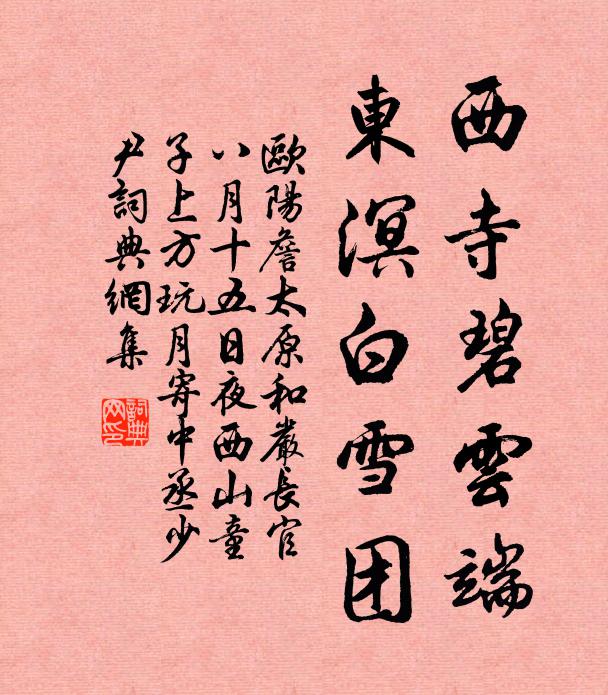 西寺碧雲端
東溟白雪团
歐陽詹太原和嚴長官
八月十五日夜西山童
子上方玩月寄中丞少
尹詞典網集
詞典网印